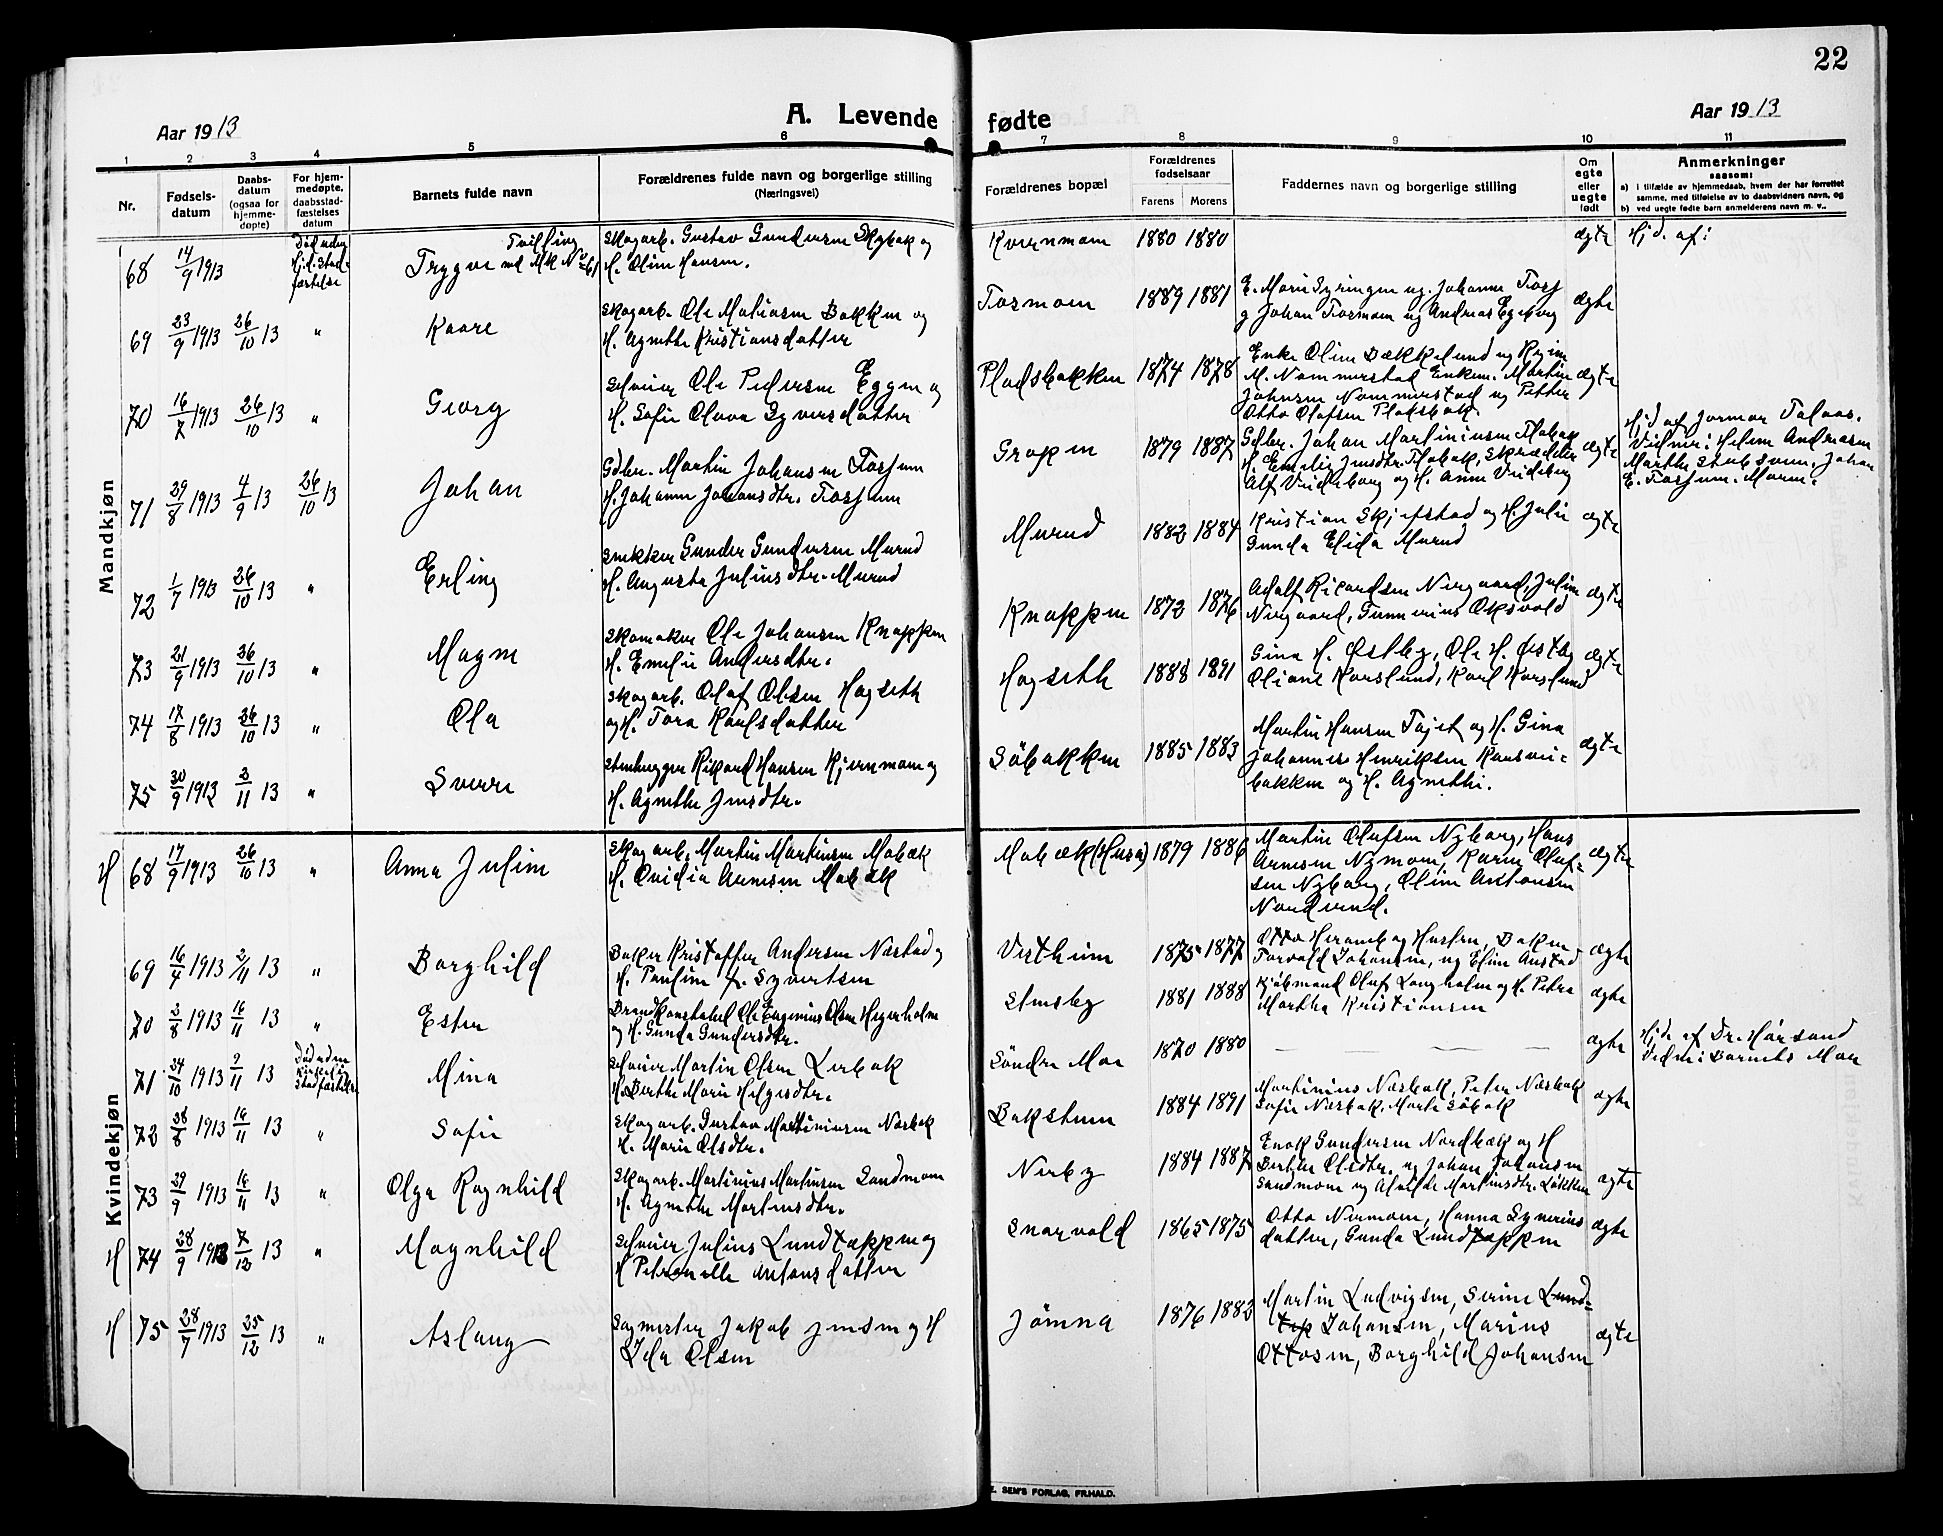 22
Aar 1913
A. Levende fødte
Aar 1913
1 2 3 4 5 6 7 8 9 10 11
Nr.
Fødsels-
datum
Daabs-
datum
(ogsaa for
hjemme-
døpte)
For hjem-
medøpte,
daabsstad-
fæstelses
datum
Barnets fulde navn
Forældrenes fulde navn og borgerlige stilling
(Næringsvei)
Forældrenes bopæl
Forældrenes
fødselsaar
Farens Morens
Faddernes navn og borgerlige stilling
Om
egte
eller
uegte
født
Anmerkninger
saasom:
a) i tilfælde av hjemmedaab, hvem der har forrettet
samme, med tilføielse av to daabsvidners navn, og
b) ved uegte fødte barn anmelderens navn m. v..
Mandkjøn
68 14/9 1913 Død uden Hj.d. Stad-fæstelse Trygve Tvilling med Mk No 61
Skogarb. Gustav Gundersen og
H. Oline Hansen.
Kvernmoen 1880 1880 ægte Hj.d. af:
69 23/9 1913 26/10 13 " Kaare
Skogarb. Ole Matiasen Bakken og
H. Agnethe Kristiansdatter
Tosmoen 1889 1881
og Johan Tosmoen og Andreas Egeberg
ægte
70 16/7 1913 26/10 13 " Georg
Sveiser Ole Pedersen Eggen og
H. Sofie Olava Syversdatter
Pladsbakken 1874 1878
Enke Oline Bækkelund og
M. Nommerstad Enkem. Martin
Johansen Nommerstad og Petter
Otto Olafsen Pladsbak.
ægte
71 29/8 1913 4/9 13 26/10 13 Johan
Gdbr. Martin Johansen Tosjum
H. Johanne Johansdtr. Tosjum
Gropen 1879 1887
Gdbr. Johan Martiniusen Mobæk
H. Emelie Jensdtr. Mobæk, Skrædder
Alf Videberg og H. Anna Videberg
ægte
Hj.d. af Jormor Talaas.
Vidner: Helene Andreasen
Marthe Stubsveen. Johan
E. Tosjum. Moren.
72 1/7 1913 26/10 13 " Erling
Snekker Gunder Gundersen Murud
H. Augusta Juliusdtr. Murud
Murud 1882 1884
Kristian Skjefstad og H. Julie
Gunda Elida Murud
ægte
73 21/9 1913 26/10 13 " Magne
Skomaker Ole Johansen Knappen
H. Emelie Andersdtr.
Knappen 1872 1876
Adolf Ricardsen Nergaard, Juline
Nergaard, Gunnerius Oksvold
ægte
74 17/8 1913 26/10 13 " Ola
Skogarb. Olaf Olsen Hagseth
og H. Tora Karlsdatter
Hagseth 1888 1891
Gina H. Østby, Ole H. Østby
Oliane Korslund, Karl Korslund
ægte
75 30/9 1913 2/11 13 " Sverre
Stenhugger Rikard Hansen Kjernmoen og
H. Agnethe Jensdtr.
Söbakken 1885 1883
Martin Hansen Tajet og H. Gina
Johannes Henriksen Kansvei-
bakken og H. Agnethe.
ægte
Kvindekjøn
H 68 17/9 1913 26/10 13 " Anna Juline
Skogarb. Martin Martinsen Mobæk
H. Ovidia Arnesen Mobæk
Mobæk (Husa) 1879 1886
Martin Olufsen Nyborg, Hans
Arnesen Nymoen, Karen Oluf-
sen Nyborg, Oline Antonsen
Nordlund.
ægte
69 16/4 1913 2/11 13 " Borghild
Baker Kristoffer Andersen Næstad og
H. Pauline f. Syvertsen
Vestheim 1875 1877
Otto Heramb og Hustru, Baker
Torvald Johansen, og Eline Anstad
ægte
70 3/8 1913 16/11 13 " Ester
Brandkonstabel Ole Eugenius Olsen Hegerholm
og H. Gunda Gundersdtr.
Elmsby 1881 1888
Kjøbmand Oluf Langholm og H. Petra
Martha Kristiansen
ægte
71 24/10 1913 2/11 13 Død uden Kirkelig Stadfæstelse Mina
Sveiser Martin Olsen Lerbak
H. Berthe Marie Helgesdtr.
Söndre Moe 1870 1880 — — — — ægte
Hj.d. af Dr. Mörsand
Vidne: Barnets Mor
72 28/8 1913 16/11 13 " Sofie
Skogarb. Gustav Martiniusen Næsbak
H. Marie Olsdtr.
Bakstuen 1884 1891
Martinius Næsbak, Peter Næsbak
Sofie Næsbak, Marte Söbak
ægte
73 29/9 1913 16/11 13 " Olga Ragnhild
Skogarb. Martinius Martinsen Sandmoen
H. Agnethe Martinsdtr.
Nerby 1884 1887
Enok Gundersen Nordbæk og H
Berthe Olsdtr. og Johan Johansen
Sandmoen og Alvilde Martinsdtr. Løkken
ægte
H 74 28/9 1913 7/12 13 " Magnhild
Sveiser Julius Lundtoppen og
H Petronelle Antonsdatter
Snarvold 1865 1875
Otto Nermoen, Hanna Syverins
datter, Gunda Lundtoppen
ægte
H 75 28/7 1913 25/12 13 " Aslaug
Sagmester Jakob Jensen og H
Ida Olsen
Jömna 1876 1882
Martin Ludvigsen, Serine Lund-
top Johansen, Marius
Ottosen, Borghild Johansen
ægte
E. SEM'S FORLAG, FR.HALD.